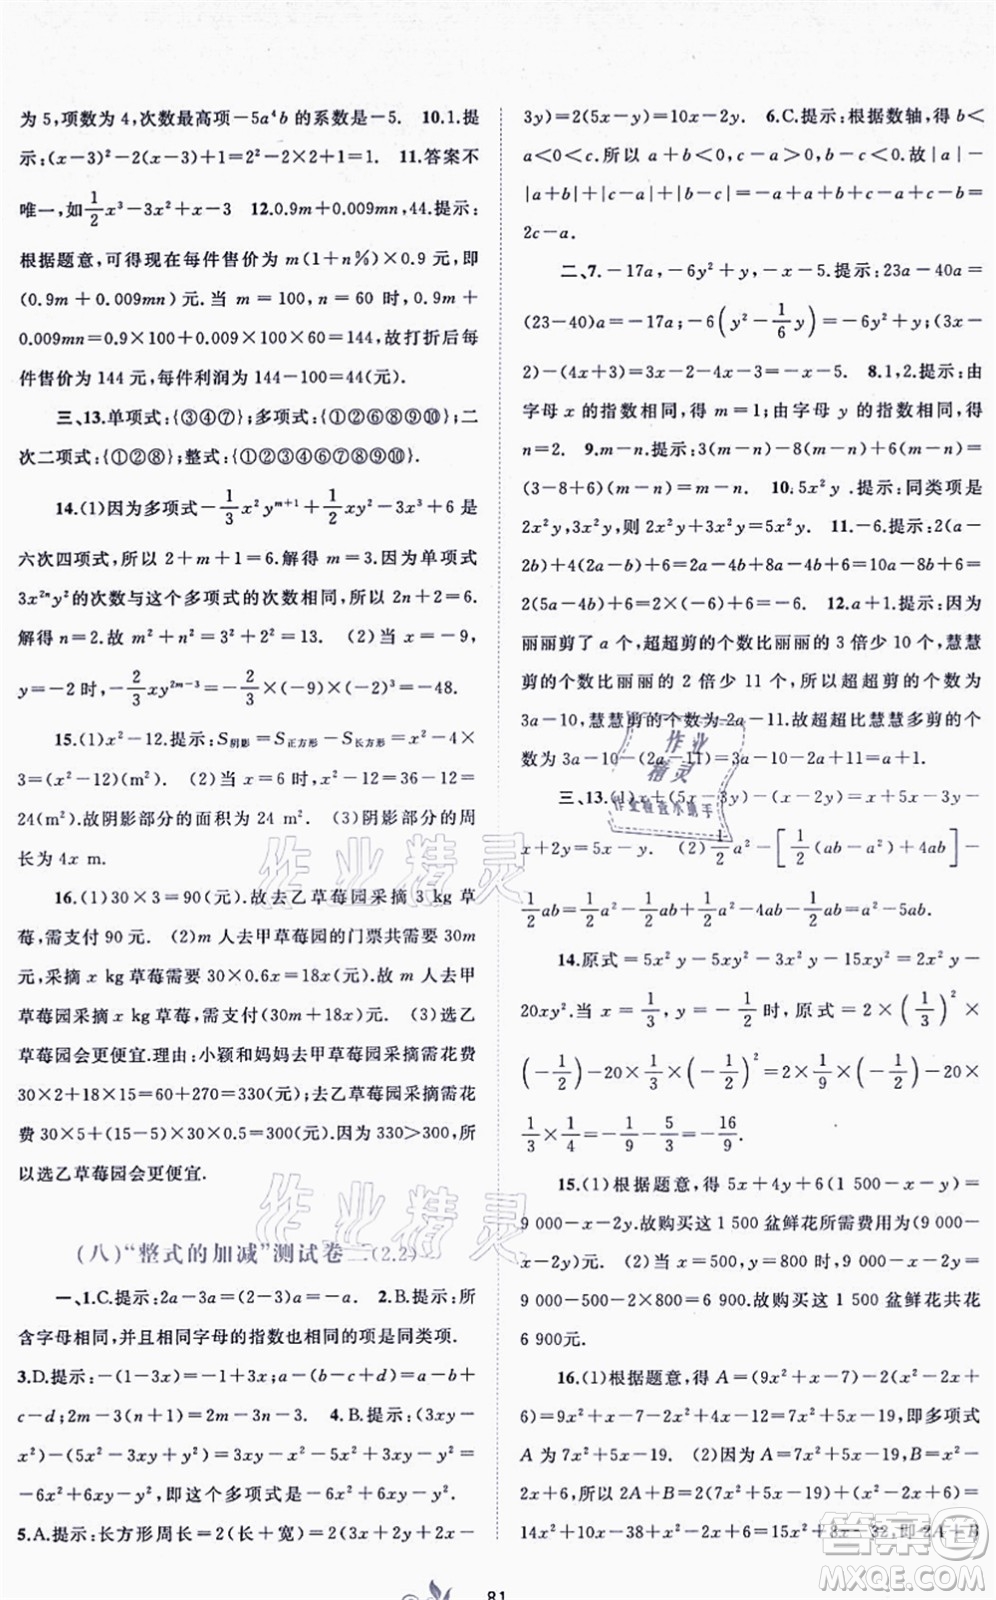 为5,项数为4,次数最高项-5a⁴b的系数是-5. 10.1.提
示:(x-3)²-2(x-3)+1=2²-2×2+1=1. 11.答案不
唯一,如1/2x³-3x²+x-3 12.0.9m+0.009mn,44.提示:
根据题意,可得现在每件售价为m(1+n%)×0.9元,即
(0.9m+0.009mn)元.当m=100,n=60时,0.9m+
0.009mn=0.9×100+0.009×100×60=144,故打折后每
件售价为144元,每件利润为144-100=44(元).
三、13.单项式:{③④⑦};多项式:{①②⑥⑧⑨⑩};二
次二项式:{①②⑧};整式:{①②③④⑥⑦⑧⑨⑩}.
14.(1)因为多项式-1/3x²y^(m+1)+1/2xy²-3x³+6是
六次四项式,所以2+m+1=6.解得m=3.因为单项式
3x^(2n)y²的次数与这个多项式的次数相同,所以2n+2=6.
解得n=2.故m²+n²=3²+2²=13. (2)当x=-9,
y=-2时,-2/3xy^(2m-3)=-2/3×(-9)×(-2)³=-48.
15.(1)x²-12.提示:S阴影=S正方形-S长方形=x²-4×
3=(x²-12)(m²). (2)当x=6时,x²-12=36-12=
24(m²).故阴影部分的面积为24 m². (3)阴影部分的周
长为4x m.
16.(1)30×3=90(元).故去乙草莓园采摘3 kg草
莓,需支付90元. (2)m人去甲草莓园的门票共需要30m
元,采摘x kg草莓需要30×0.6x=18x(元).故m人去甲
草莓园采摘x kg草莓,需付(30m+18x)元. (3)选乙
草莓园会更便宜.理由:小颖和妈妈去甲草莓园采摘需花费
30×2+18×15=60+270=330(元);去乙草莓园采摘需花
费30×5+(15-5)×30×0.5=300(元).因为330>300,所
以选乙草莓园会更便宜.
(八)“整式的加减”测试卷二(2.2)
一、1.C.提示:2a-3a=(2-3)a=-a. 2.B.提示:所
含字母相同,并且相同字母的指数也相同的项是同类项.
3.D.提示:-(1-3x)=-1+3x;a-(b-c+d)=a-b+
c-d;2m-3(n+1)=2m-3n-3. 4.B.提示:(3xy-
x²)-(5x²+3xy+y²)=3xy-x²-5x²-3xy-y²=
-6x²+(-y²)=-6x²-y²,即这个多项式是-6x²-y².
5.A.提示:长方形周长=2(长+宽)=2(2x+2y+3x-
3y)=2(5x-y)=10x-2y. 6.C.提示:根据数轴,得b<
a<0<c.所以a+b<0,c-a>0,b-c<0.故|a|-
|a+b|+|c-a|+|b-c|=-a+a+b+c-a+c-b=
2c-a.
二、7.-17a,-6y²+y,-x-5.提示:23a-40a=
(23-40)a=-17a;-6(y²-1/6y)=-6y²+y;(3x-
2)-(4x+3)=3x-2-4x-3=-x-5. 8.1,2.提示:由
字母x的指数相同,得m=1;由字母y的指数相同,得
n=2. 9.m-n.提示:3(m-n)-8(m-n)+6(m-n)=
(3-8+6)(m-n)=m-n. 10.5x²y.提示:同类项是
2x²y,3x²y,则2x²y+3x²y=5x²y. 11.-6.提示:2(a-
2b)+4(2a-b)+6=2a-4b+8a-4b+6=10a-8b+6=
2(5a-4b)+6=2×(-6)+6=-6. 12.a+1.提示:因为
丽丽剪了a个,超超剪的个数比丽丽的3倍少10个,慧慧
剪的个数比丽丽的2倍少11个,所以超超剪的个数为
3a-10,慧慧剪的个数为2a-11.故超超比慧慧多剪的个
数为3a-10-(2a-11)=3a-10-2a+11=a+1.
三、13.(1)x+(5x-3y)-(x-2y)=x+5x-3y-
x+2y=5x-y. (2)1/2a²-[1/2(ab-a²)+4ab]-
1/2ab=1/2a²-1/2ab+1/2a²-4ab-1/2ab=a²-5ab.
14.原式=5x²y-5xy²-3x²y-15xy²=2x²y-
20xy².当x=1/3,y=-1/2时,原式=2×(1/3)²×
(-1/2)-20×1/3×(-1/2)²=2×1/9×(-1/2)-20×
1/3×1/4=-1/9-5/3=-16/9.
15.(1)根据题意,得5x+4y+6(1 500-x-y)=
9 000-x-2y(元).故购买这1 500盆鲜花所需费用为
(9 000-x-2y)元. (2)当x=500,y=800时,9 000-x-
2y=9 000-500-2×800=6 900.故购买这1 500盆鲜花共花
6 900元.
16.(1)根据题意,得A=(9x²+x+7)-2(x²-2x+
6)=9x²+3x-7-2x²+4x-12=7x²+5x-19,即多项式
A为7x²+5x-19. (2)因为A=7x²+5x-19,B=x²-
2x+6,所以2A+B=2(7x²+5x-19)+(x²-2x+6)=
14x²+10x-38+x²-2x+6=15x²+8x-32,即2A+B
81
作业精灵
作业精灵
作业精灵
作业检查小助手
答案圈
MXQE.COM